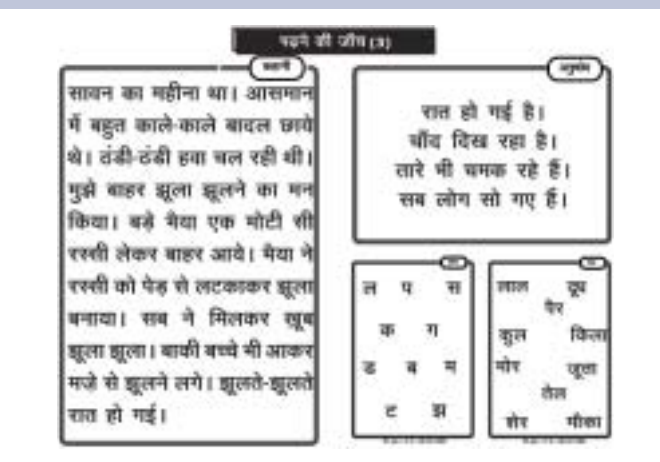 पढ़ने की जाँच (3)
कहानी
सावन का महीना था। आसमान
में बहुत काले-काले बादल छाये
थे। ठंडी-ठंडी हवा चल रही थी।
मुझे बाहर झूला झूलने का मन
किया। बड़े भैया एक मोटी सी
रस्सी लेकर बाहर आये। भैया ने
रस्सी को पेड़ से लटकाकर झूला
बनाया। सब ने मिलकर खूब
झूला झूला। बाकी बच्चे भी आकर
मज़े से झूलने लगे। झूलते-झूलते
रात हो गई।
अनुच्छेद
रात हो गई है।
चाँद दिख रहा है।
तारे भी चमक रहे हैं।
सब लोग सो गए हैं।
ल प स
क ग
ड ब म
ट झ
लाल दूध
पैर
कुल किला
मोर जूता
तेल
शेर मौका